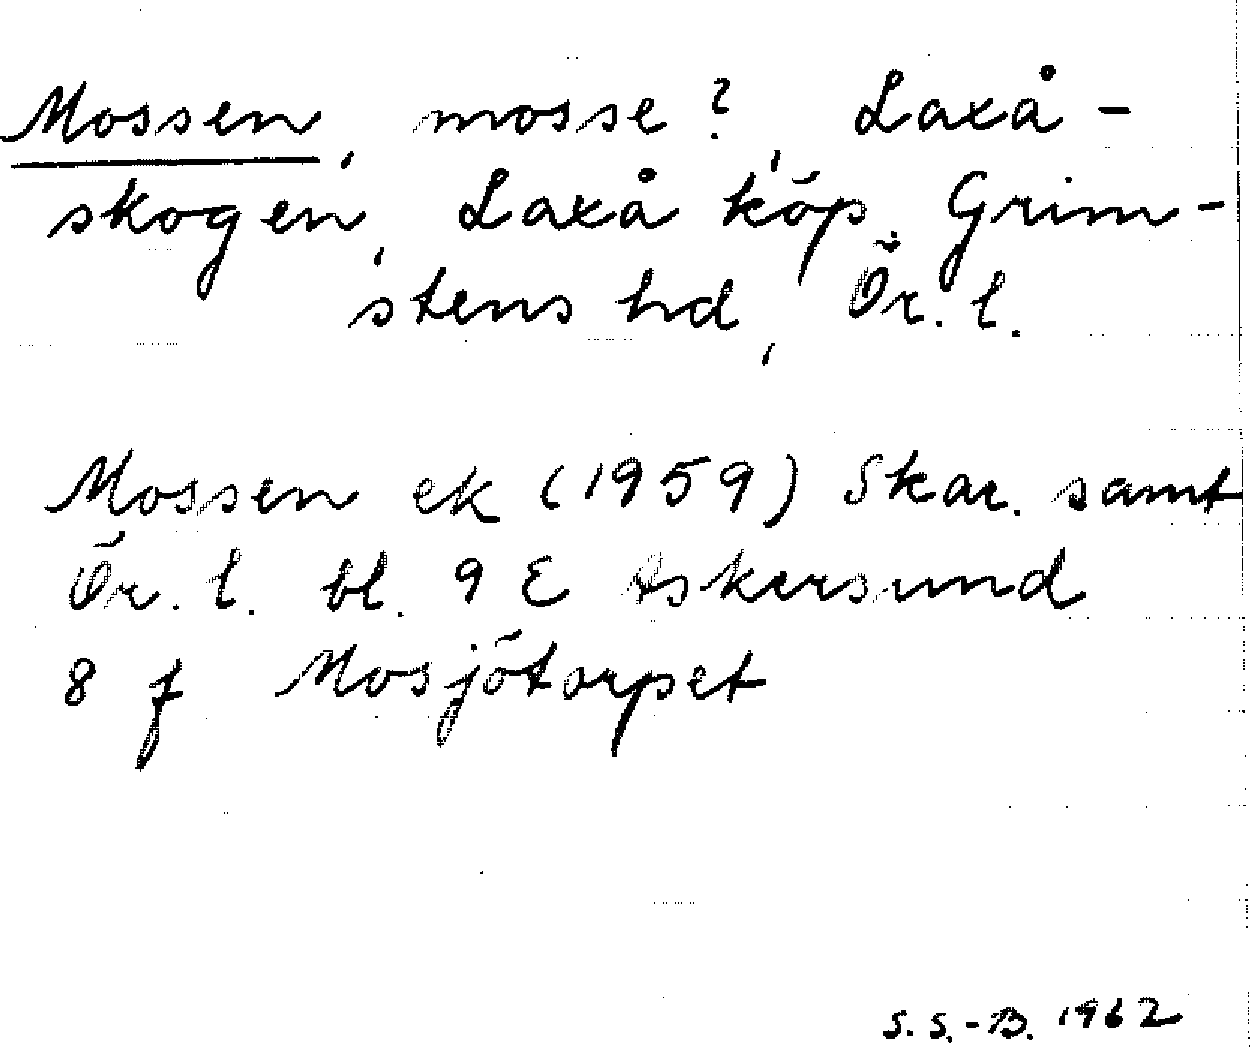 Mossen, mosse?, Laxå-
skogen, Laxå köp. Grim-
stens hd, Ör. l.
Mossen ek (1959) Skar. samt
Ör. l. bl. 9 E Askersund
8 f Mosjötorpet
S. S.-B. 1962